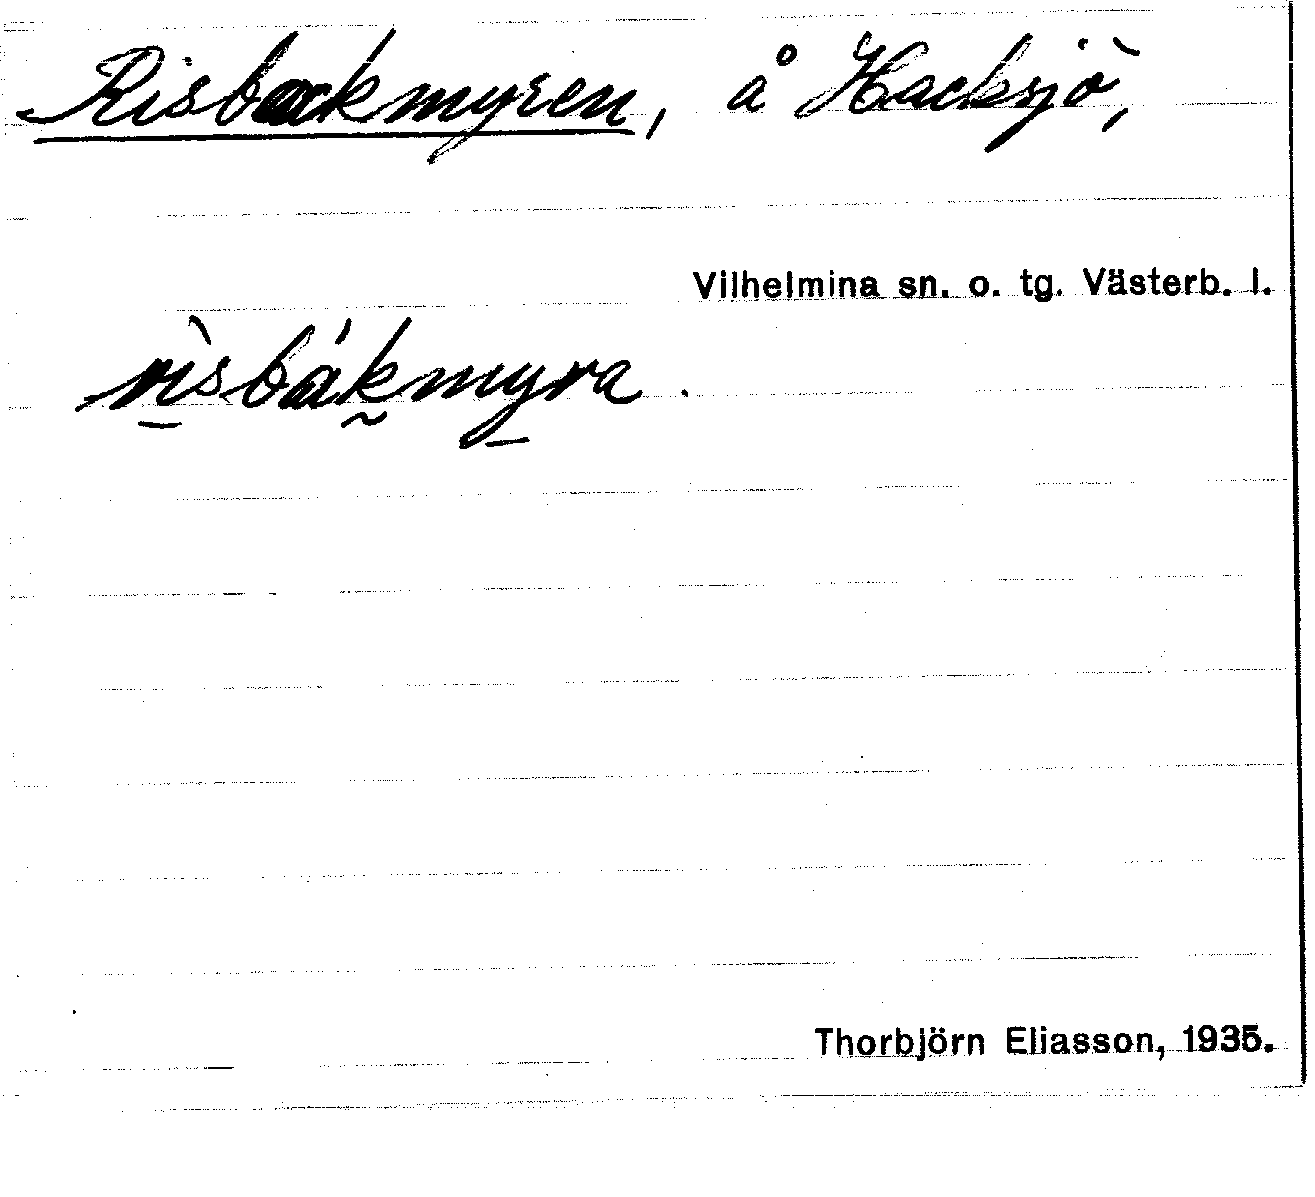 Risbackmyren, å Hacksjö,
Vilhelmina sn. o. tg. Västerb. l.
rìsbákmyra.
Thorbjörn Eliasson, 1935.